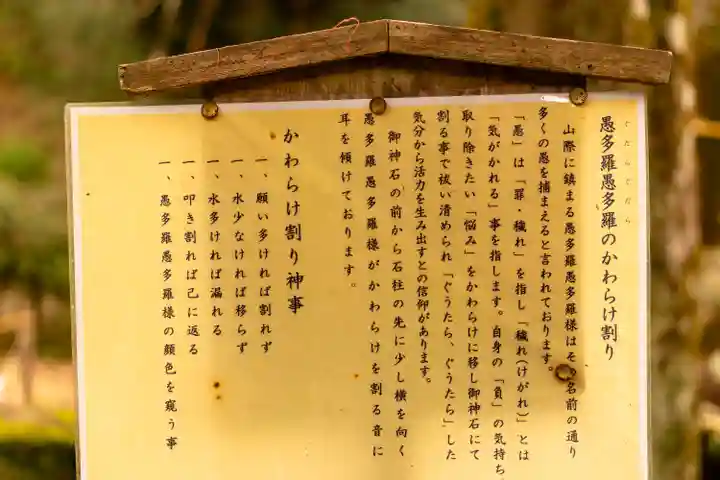 ぐたらぐたら
愚多羅愚多羅のかわらけ割り
山際に鎮まる愚多羅愚多羅様はその名前の通り
多くの愚を捕まえると言われております。
「愚」は「罪・穢れ」を指し「穢れ(けがれ)」とは
「気がかれる」事を指します。自身の「負」の気持ち
取り除きたい「悩み」をかわらけに移し御神石にて
割る事で祓い清められ「ぐうたら、ぐうたら」した
気分から活力を生み出すとの信仰があります。
御神石の前から石柱の先に少し横を向く
愚多羅愚多羅様がかわらけを割る音に
耳を傾けております。
かわらけ割り神事
一、願い多ければ割れず
一、水少なければ移らず
一、水多ければ漏れる
一、叩き割れば己に返る
一、愚多羅愚多羅様の顔色を窺う事